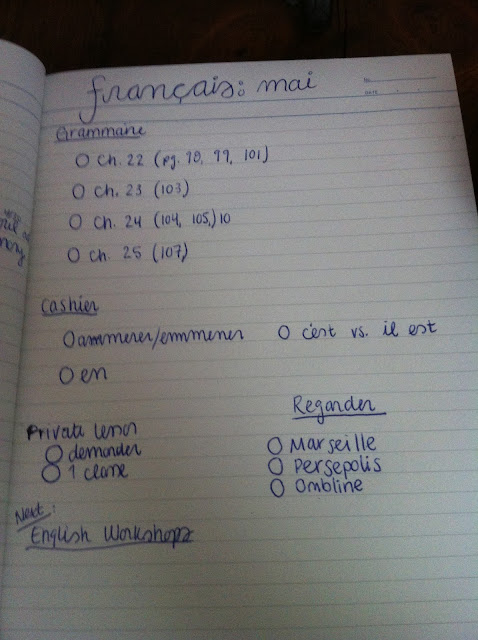 français: mai
No.
Date
Grammaire
Ch. 22 (pg. 98, 99, 101)
Ch. 23 (103)
Ch. 24 (104, 105,) 10
Ch. 25 (107)
Cashier
ammener/emmener c'est vs. il est
en
Private lesson
demander
1 classe
Regarder
Marseille
Persepolis
Ombline
Next:
English Workshops